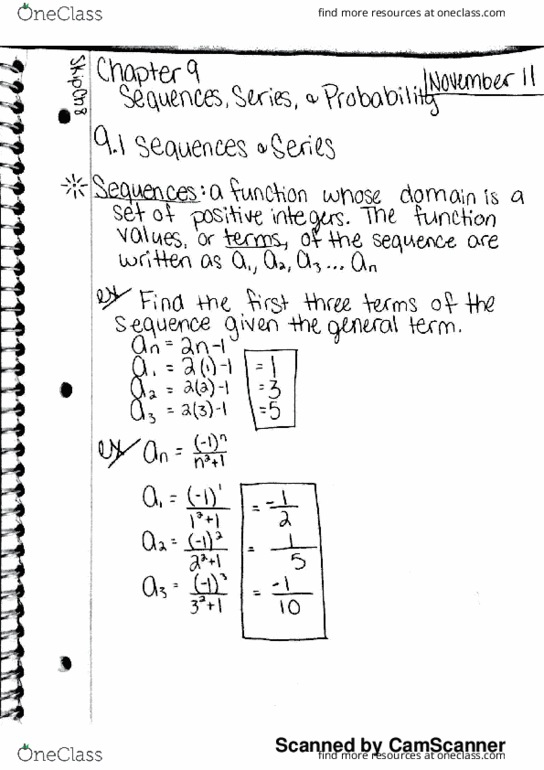 OneClass
find more resources at oneclass.com
Skip Ch8
Chapter 9
November 11
Sequences, Series, & Probability
9.1 Sequences & Series
Sequences: a function whose domain is a
set of positive integers. The function
values, or terms, of the sequence are
written as a₁, a₂, a₃ ... aₙ
ex/ Find the first three terms of the
sequence given the general term.
aₙ = 2n-1
a₁ = 2(1)-1 = 1
a₂ = 2(2)-1 = 3
a₃ = 2(3)-1 = 5
ex/ aₙ = (-1)ⁿ/n²+1
a₁ = (-1)¹/1²+1 = -1/2
a₂ = (-1)²/2²+1 = 1/5
a₃ = (-1)³/3²+1 = -1/10
Scanned by CamScanner
OneClass
find more resources at oneclass.com